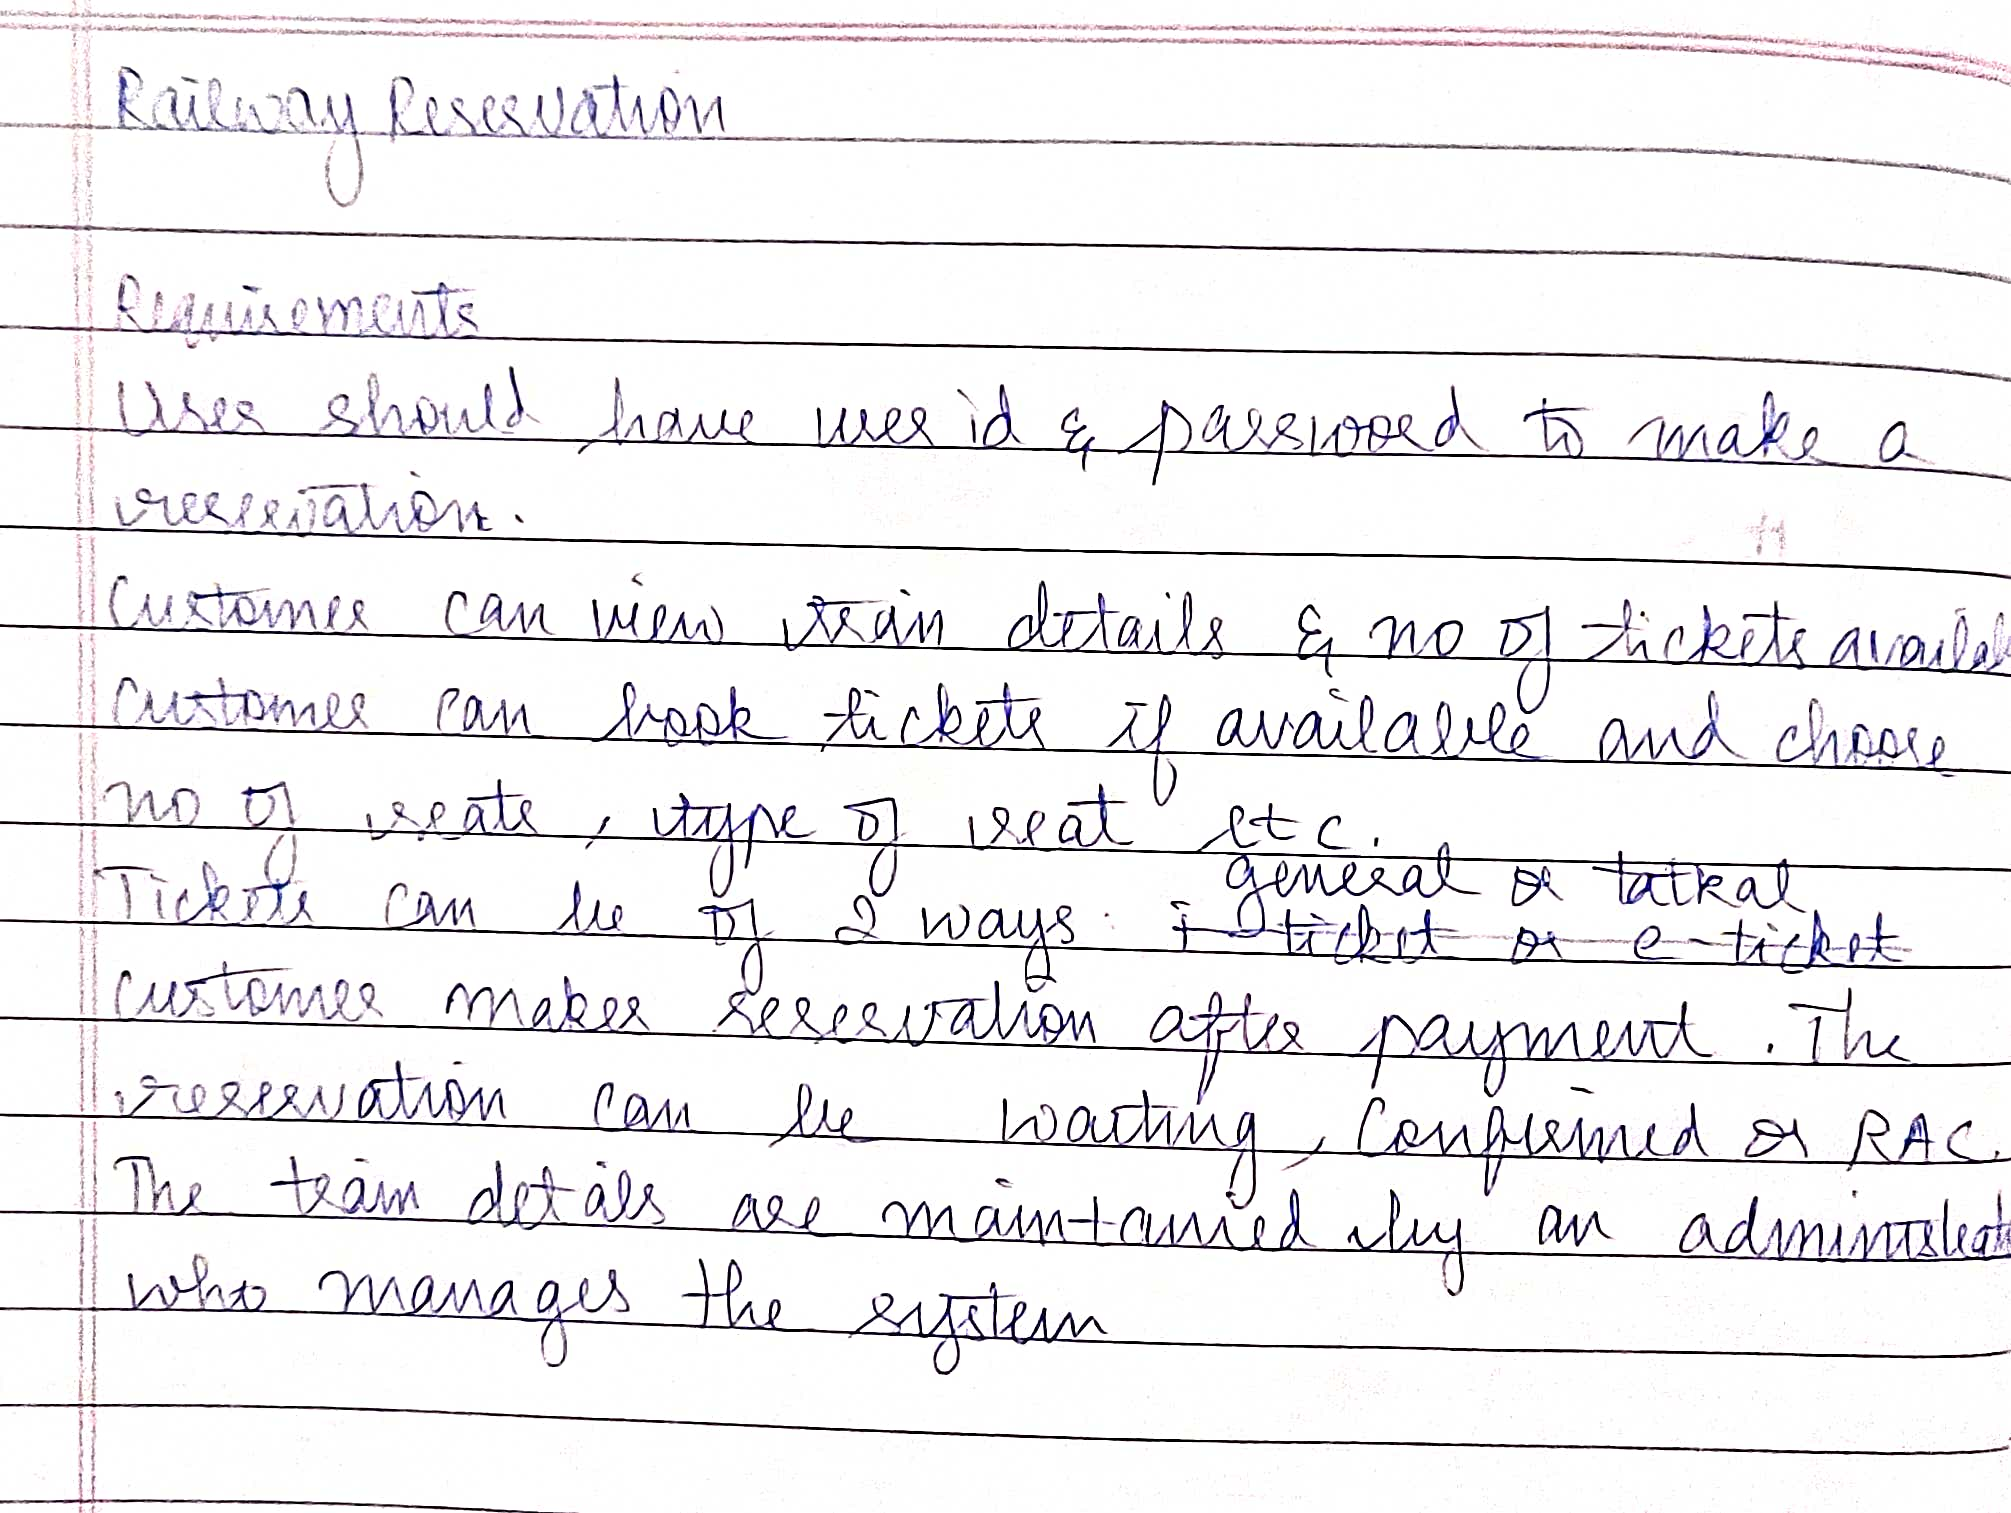 Railway Reservation
Requirements
User should have user id & password to make a
reservation.
Customer can view train details & no of tickets availab
Customer can book tickets if available and choose
no of seats, type of seat etc.
general or tatkal
Tickets can be of 2 ways: i-ticket or e-ticket
Customer makes reservation after payment. The
reservation can be waiting, Confirmed or RAC.
The train details are maintained by an administrat
who manages the system